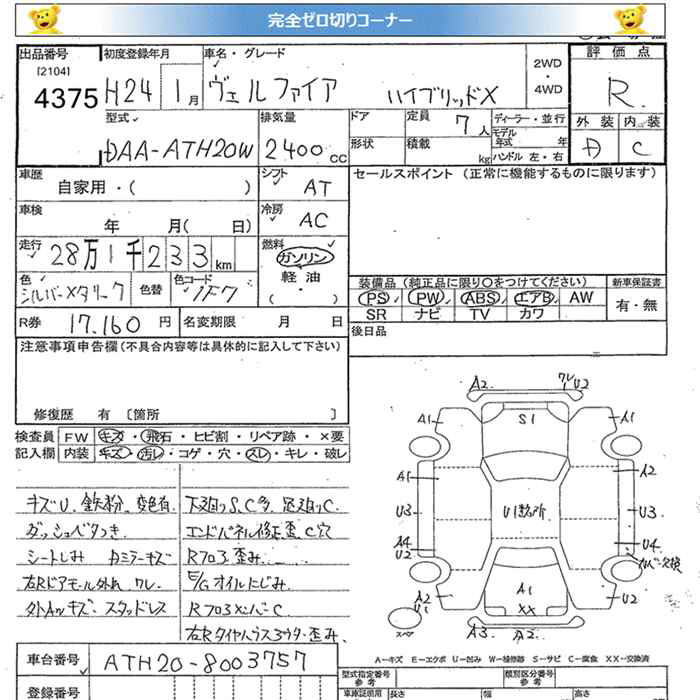 完全ゼロ切りコーナー
出品番号
[2104]
4375
初度登録年月
H24 1月
車名・グレード
ヴェルファイア ハイブリッドX
2WD
・
4WD
評価点
R
型式
DAA-ATH20W
排気量
2400cc
ドア
形状
定員 7人
積載 kg
ディーラー・並行
モデル年式 年
ハンドル 左・右
外装 内装
D C
車歴
自家用・( )
シフト AT
セールスポイント (正常に機能するものに限ります)
車検
年 月( 日)
冷房 AC
走行
28万1千233km
燃料
ガソリン
軽油
( ・ )
色
シルバーメタリック
色替
色コード
1F7
装備品 (純正品に限り○をつけてください) 新車保証書
PS PW ABS エアB AW 有・無
SR ナビ TV カワ
R券 17,160円
名変期限 月 日
後日品
注意事項申告欄(不具合内容等は具体的に記入して下さい)
修復歴 有 [箇所 ]
検査員 FW キズ・飛石・ヒビ割・リペア跡・×要
記入欄 内装 キズ・汚レ・コゲ・穴・スレ・キレ・破レ
キズU、鉄粉、変色有
ダッシュベタつき
シートしみ Dミラーキズ
右Rドアモール外れ、ワレ
外AWキズ、スタッドレス
下廻りS、C多、足廻りC
エンドパネル修正歪、C穴
Rフロア歪み
E/Gオイルにじみ
RフロアメンバーC
右Rタイヤハウスアウター歪み
A2 ワレ U2
A1 S1 A1
A1 A2
U3 U1数ヶ所 U3
A4 U4
U2 カバー欠損
A2 A1 U2
U1 XX
スペア
A3 A2
A-キズ E-エクボ U-凹み W-補修跡 S-サビ C-腐食 XX-交換済
車台番号 ATH20-8003757
登録番号
型式指定番号
参考
類別区分番号
参考
長さ 幅 高さ